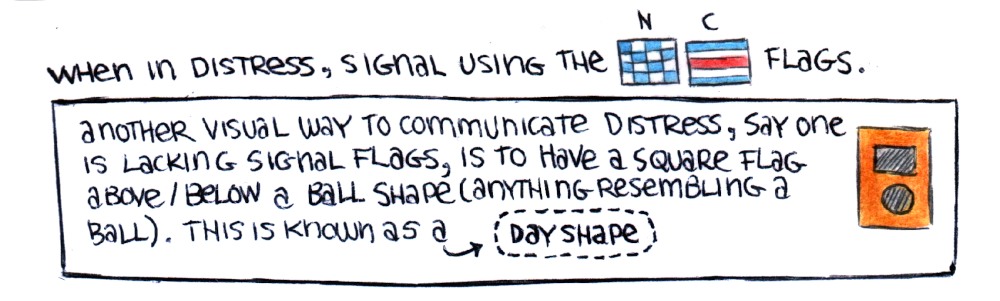 N C
WHEN IN DISTRESS, SIGNAL USING THE FLAGS.
ANOTHER VISUAL WAY TO COMMUNICATE DISTRESS, SAY ONE
IS LACKING SIGNAL FLAGS, IS TO HAVE A SQUARE FLAG
ABOVE/BELOW A BALL SHAPE (ANYTHING RESEMBLING A
BALL). THIS IS KNOWN AS A DAY SHAPE